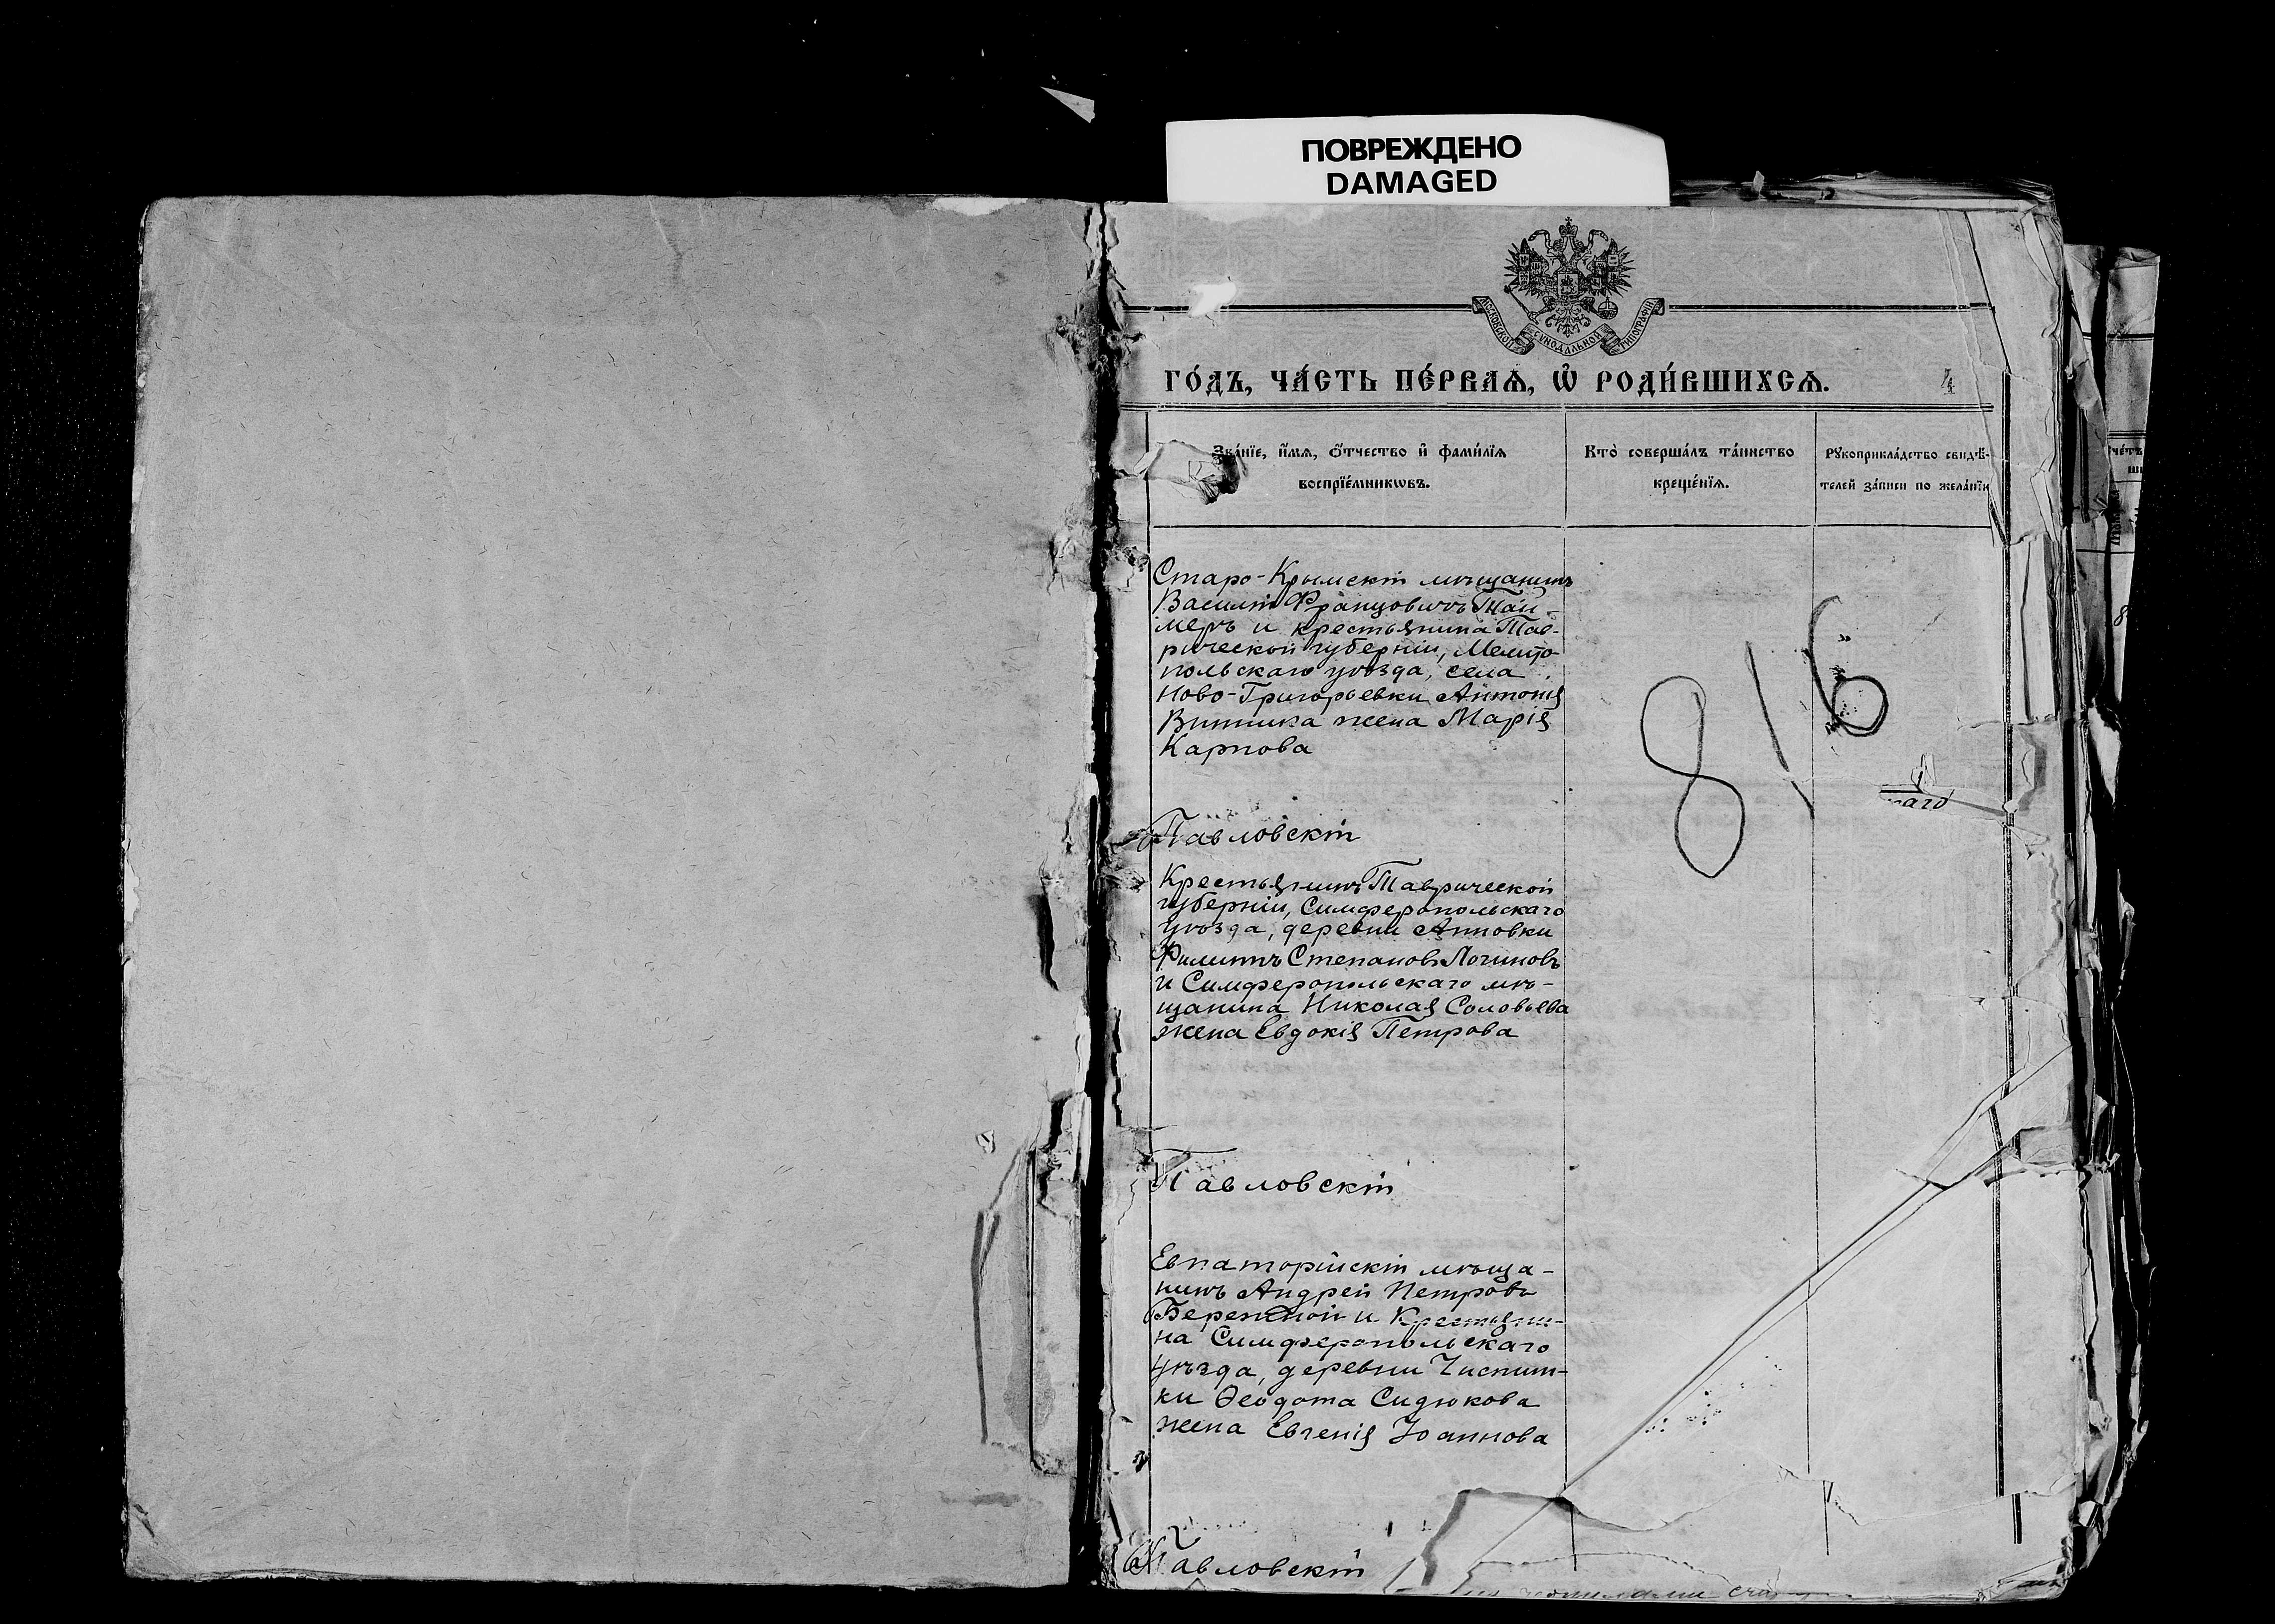 ПОВРЕЖДЕНО
DAMAGED
МОСКОВСКОЙ СУНОДАЛЬНОЙ ТИПОГРАФІИ
ГО́ДЪ, ЧА́СТЬ ПЕ́РВАѦ, Ѡ҆ РОДИ́ВШИХСѦ.
4
Зва́нїе, и҆́мѧ, ѻ҆́тчество и҆ фами́лїѧ
воспрїе́мникѡвъ.
Кто̀ соверша́лъ та́инство
креще́нїѧ.
Рꙋкоприкла́дство свидѣ́-
телей за́писи по жела́нїю
Старо-Крымскій мѣщанинъ
Василій Францовичъ
меръ и крестьянина Тав-
рической губерніи, Мелито
польскаго уѣзда, села
Ново-Григорьевки Антонія
жена Марія
Карпова
816
Павловскій
каго
Крестьянинъ Таврической
губерніи, Симферопольскаго
уѣзда, деревни Анновки
Филиппъ Степановъ Логиновъ
и Симферопольскаго мѣ-
щанина Николая Соловьева
жена Евдокія Петрова
Павловскій
Евпаторійскій мѣща-
нинъ Андрей Петровъ
Бережной и Крестьяни-
на Симферопольскаго
уѣзда, деревни Чистин-
ки Ѳеодота Сидюкова
жена Евгенія Іоаннова
Павловскій